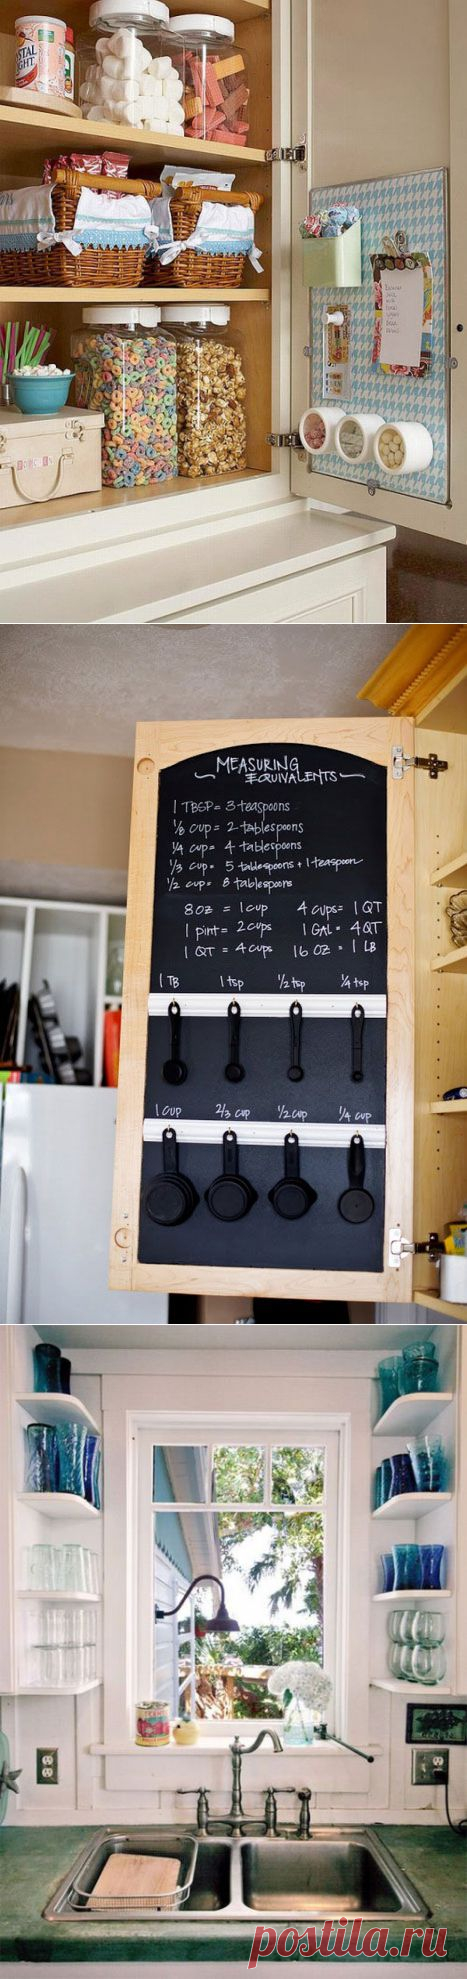 CRYSTAL
LIGHT
POPCORN
MEASURING
EQUIVALENTS
1 TBSP = 3 teaspoons
1/8 cup = 2 tablespoons
1/4 cup = 4 tablespoons
1/3 cup = 5 tablespoons + 1 teaspoon
1/2 cup = 8 tablespoons
8 oz = 1 cup 4 cups = 1 QT
1 pint = 2 cups 1 GAL = 4 QT
1 QT = 4 cups 16 OZ = 1 LB
1 TB 1 tsp 1/2 tsp 1/4 tsp
1 cup 2/3 cup 1/2 cup 1/4 cup
postila.ru